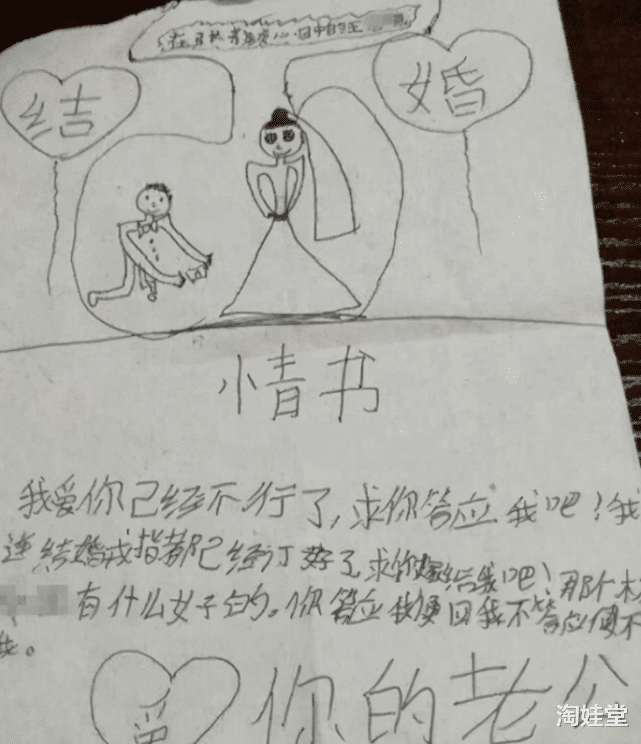 心目中的
结 婚
小情书
我爱你已经不行了,求你答应我吧!我
连结婚戒指都已经订好了,求你嫁给我吧!那个
有什么好的。你答应我便回我不答应便不
我。
爱 你的老公
淘娃堂